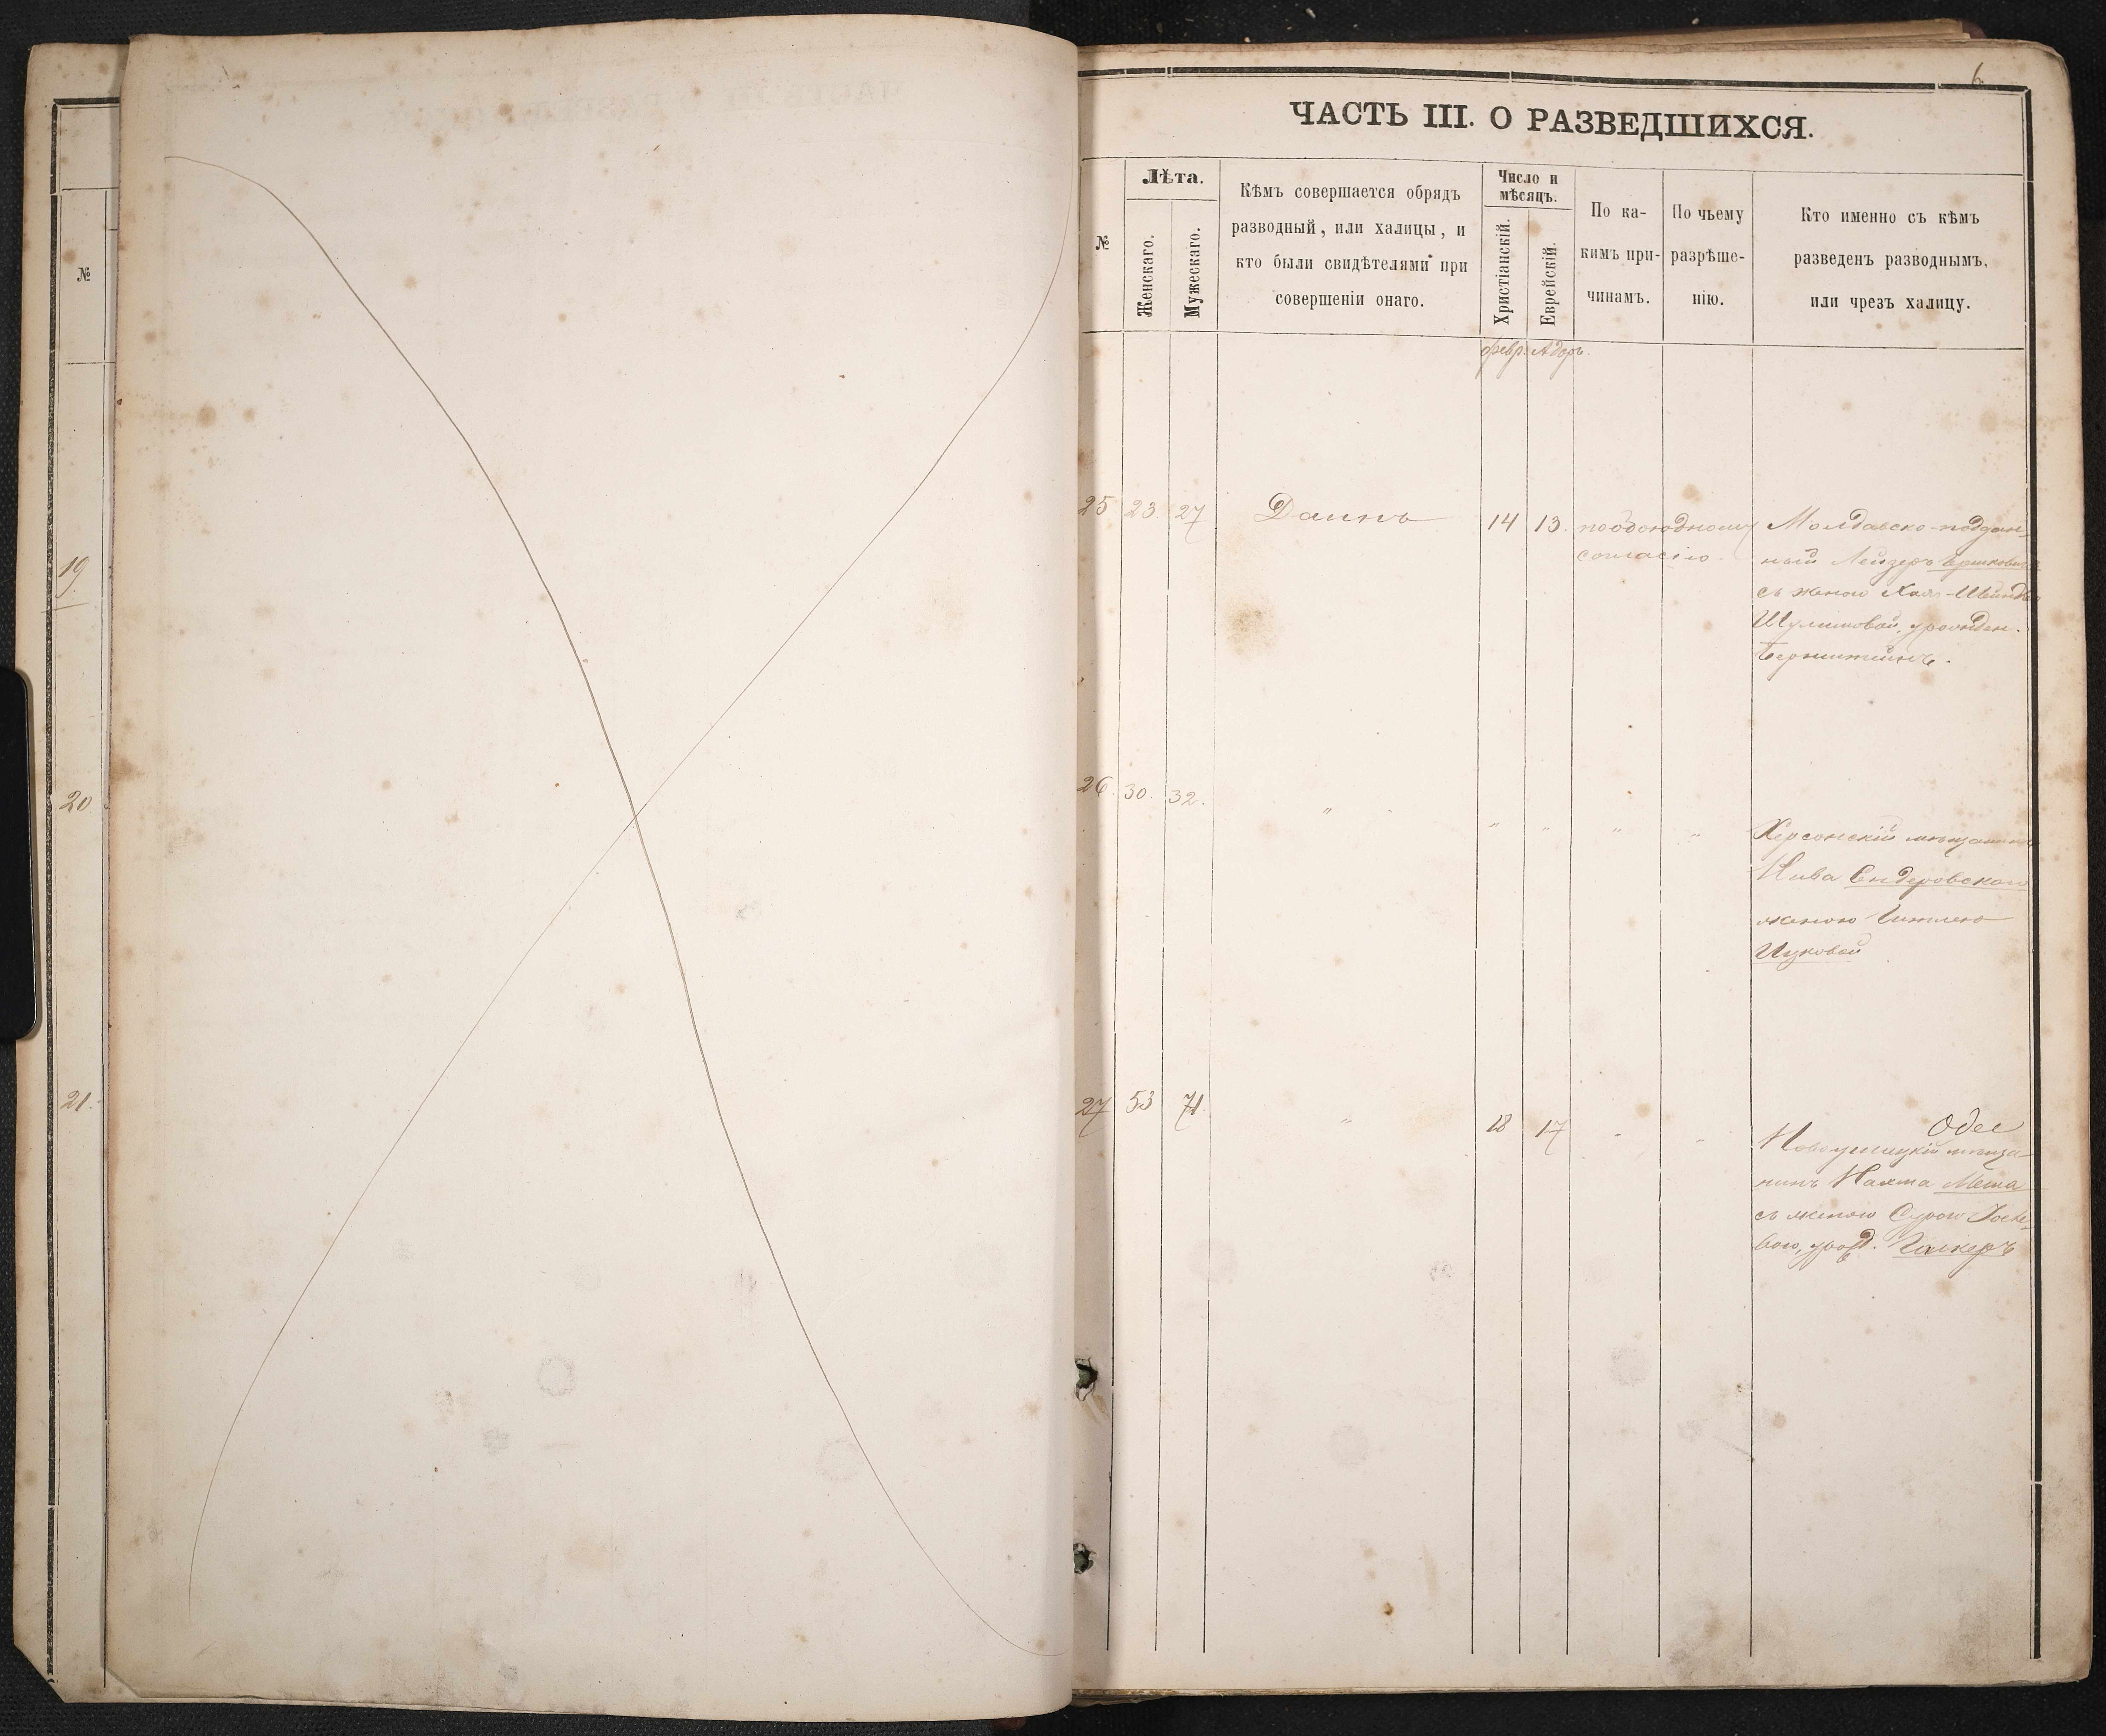 №
19
20
21.
6
ЧАСТЬ III. О РАЗВЕДШИХСЯ.
№
Лѣта.
Женскаго.
Мужескаго.
Кѣмъ совершается обрядъ
разводный, или халицы, и
кто были свидѣтелями при
совершеніи онаго.
Число и
мѣсяцъ.
Христіанскій.
Еврейскій.
По ка-
кимъ при-
чинамъ.
По чьему
разрѣше-
нію.
Кто именно съ кѣмъ
разведенъ разводнымъ,
или чрезъ халицу.
февр. Адаръ.
25 23. 27 14 13.
по обоюдному
согласію.
Молдавско-поддан-
ный Лейзеръ
съ женою Хая-Шейндл
Шулимовой, урожден.
Бернштейнъ.
26. 30. 32. " " " " "
Херсонскій мѣщанинъ
женою Гитлею
Ицковой
27 53 71. " 18 17 " "
Одес
Новоушицкій мѣща-
нинъ Нахта Меша
съ женою Сурою Іосе-
вою, урожд.